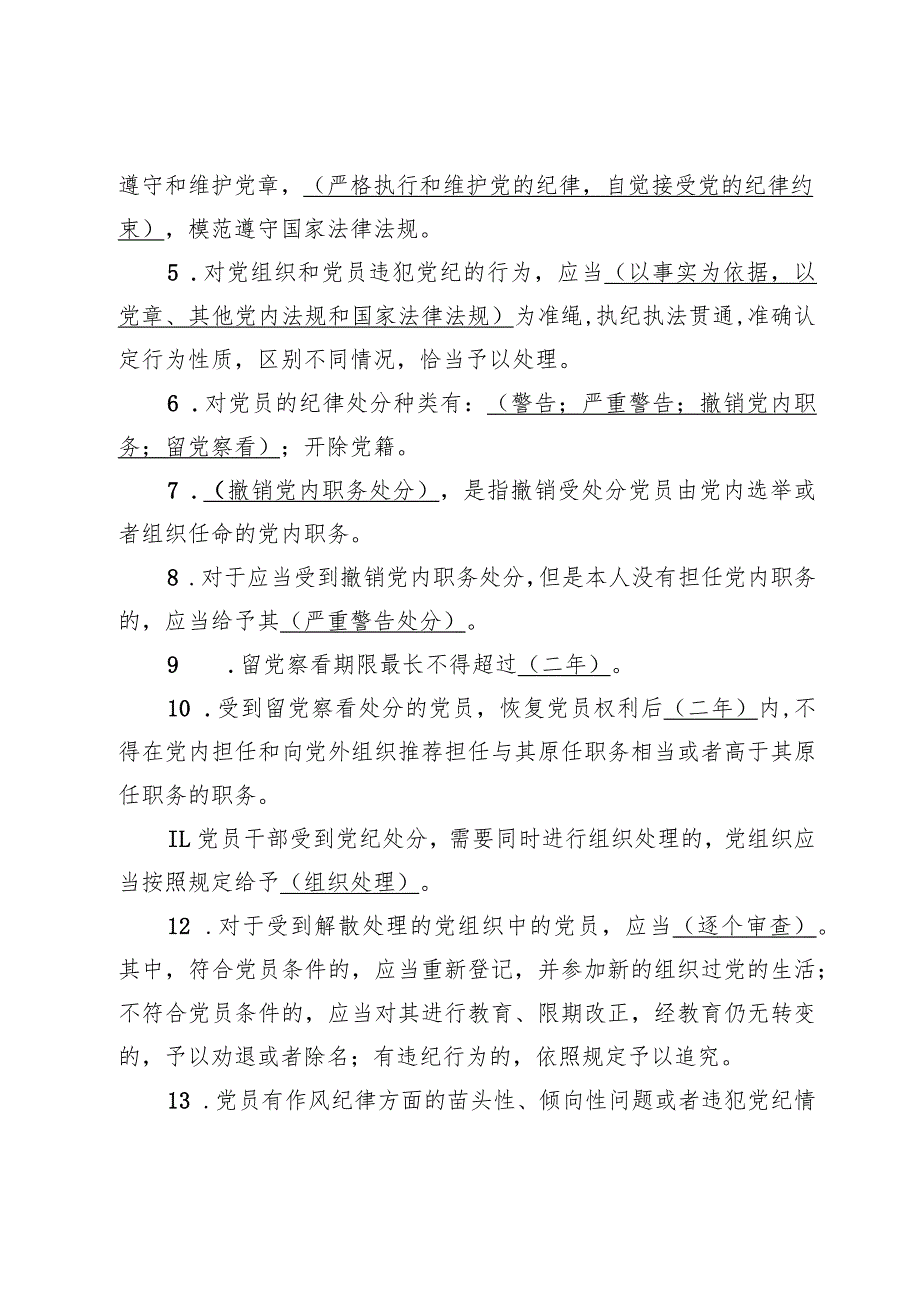 遵守和维护党章，（严格执行和维护党的纪律，自觉接受党的纪律约
束），模范遵守国家法律法规。
5 .对党组织和党员违犯党纪的行为，应当（以事实为依据，以
党章、其他党内法规和国家法律法规）为准绳,执纪执法贯通,准确认
定行为性质，区别不同情况，恰当予以处理。
6 .对党员的纪律处分种类有：（警告；严重警告；撤销党内职
务；留党察看）；开除党籍。
7 .（撤销党内职务处分），是指撤销受处分党员由党内选举或
者组织任命的党内职务。
8 .对于应当受到撤销党内职务处分,但是本人没有担任党内职务
的，应当给予其（严重警告处分）。
9 .留党察看期限最长不得超过（二年）。
10 .受到留党察看处分的党员，恢复党员权利后（二年）内,不
得在党内担任和向党外组织推荐担任与其原任职务相当或者高于其原
任职务的职务。
IL党员干部受到党纪处分，需要同时进行组织处理的，党组织应
当按照规定给予（组织处理）。
12 .对于受到解散处理的党组织中的党员，应当（逐个审查）。
其中，符合党员条件的，应当重新登记，并参加新的组织过党的生活；
不符合党员条件的，应当对其进行教育、限期改正，经教育仍无转变
的，予以劝退或者除名；有违纪行为的，依照规定予以追究。
13 .党员有作风纪律方面的苗头性、倾向性问题或者违犯党纪情